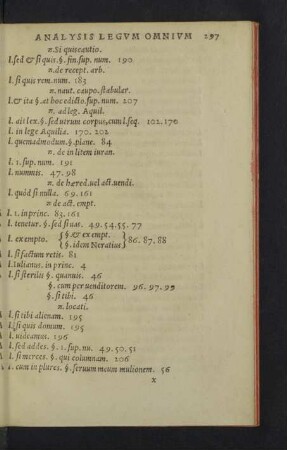 ANALYSIS LEGVM OMNIVM 297
π. Si quis cautio.
l. sed & si quis. §. fin. sup. num. 190
π. de recept. arb.
l. si quis rem. num. 183
π. naut. caupo. stabular.
l. & ita §. at hoc edicto. sup. num. 207
π. ad leg. Aquil.
l. ait lex. §. sed utrum corpus, cum l. seq. 102. 170
l. in lege Aquilia. 170. 202
l. quemadmodum. §. plane. 84
π. de in litem iuran.
l. 1. sup. num. 191
l. nummis. 47. 98
π. de hæred. uel act. uendi.
l. quòd si nulla. 69. 161
π de act. empt.
l. 1. in princ. 83. 161
l. tenetur. §. sed si uas. 49. 54. 55. 77
l. ex empto. { §. & ex empt. §. idem Neratius } 86. 87. 88
l. si factum retis. 81
l. Iulianus. in princ. 4
l. si sterilis §. quamuis. 46
§. cum per uenditorem. 96. 97. 99
§. si tibi. 46
π. locati.
l. si tibi alienam. 195
l. si quis domum. 195
l. uideamus. 196
l. sed addes. §. 1. sup. nu. 49. 50. 51
l. si merces. §. qui columnam. 206
l. cum in plures. §. seruum meum mulionem. 56
x